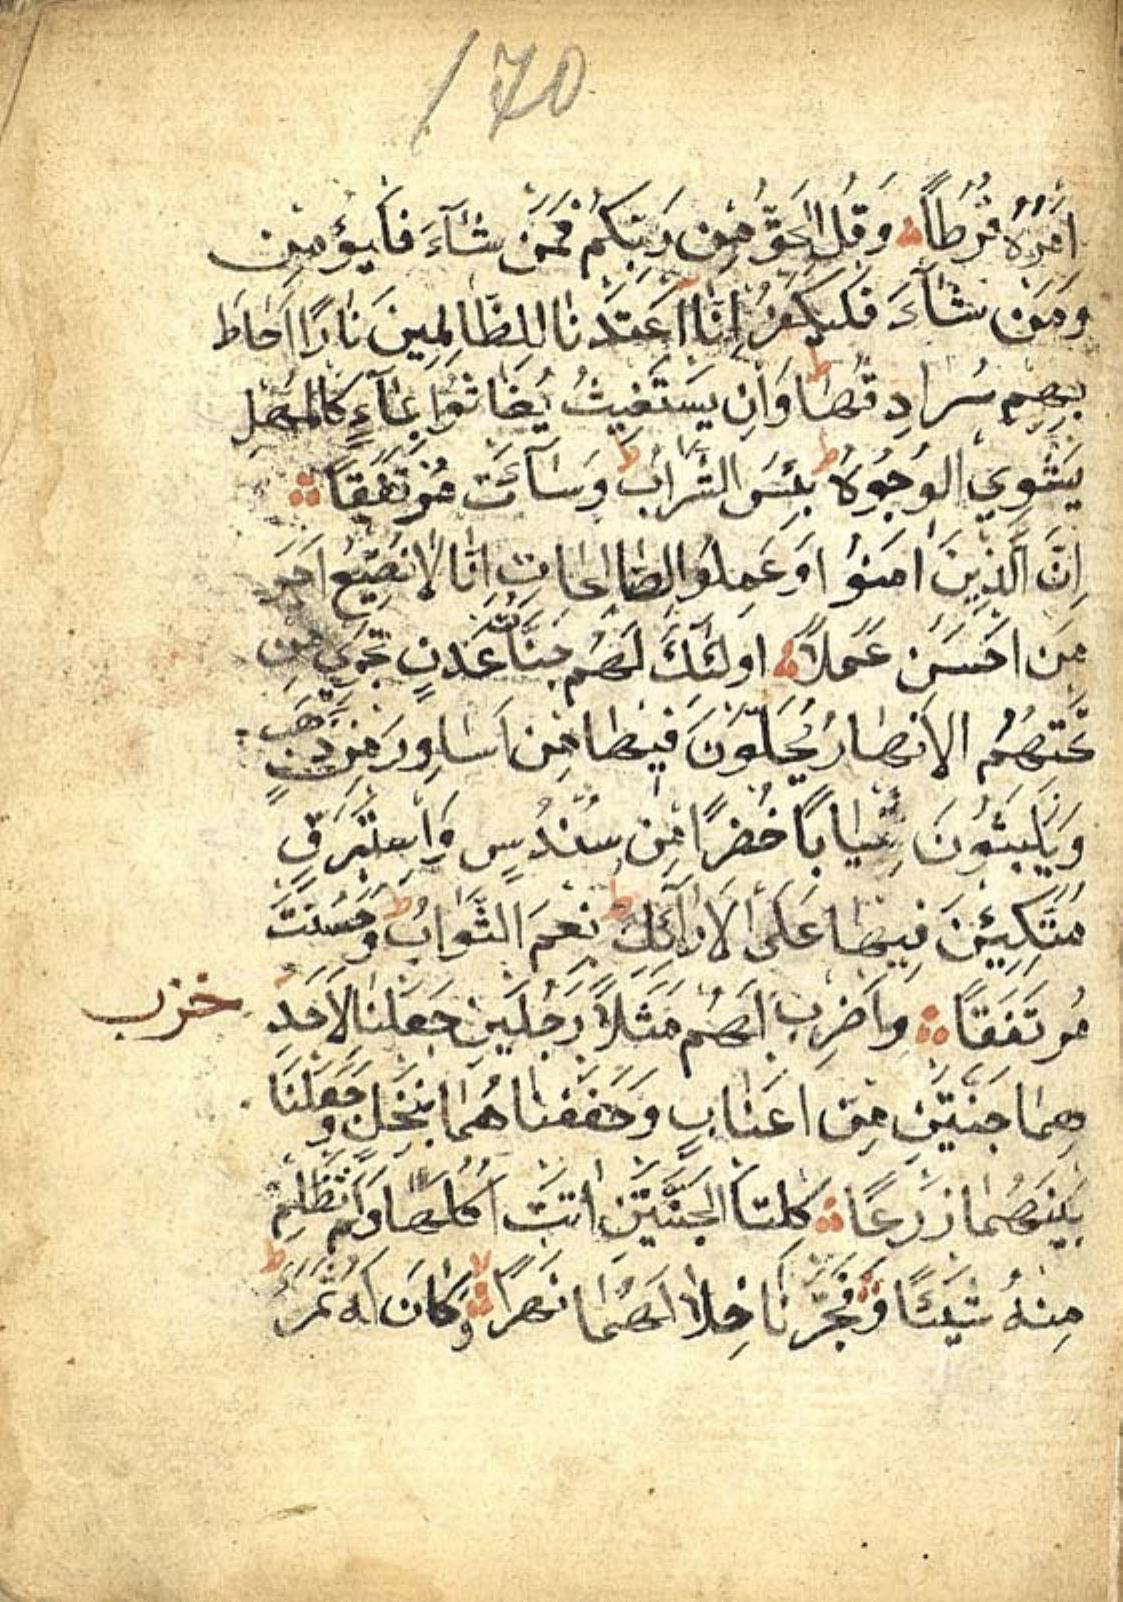 170
اَمْرُهُ فُرُطاً وَقُلِ الْحَقُّ مِن رَبِّكُم فَمَن شَآءَ فَليُؤمِن
وَمَن شَآءَ فَليَكفُر اِنَّا اَعتَدنا لِلظَّالِمِينَ نَارًا اَحَاطَ
بِهِم سُرادِقُهَا ط وَاِن يَستَغِيثُ يُغَاثُوا بِمَآءٍ كَالمُهلِ
يَشوِي الوُجُوهَ ط بِئسَ الشَّرابُ ط وَسَآءَت مُرتَفَقاً
اِنَّ الَّذِينَ اٰمَنُوا وَعَمِلُوا الصَّالِحَاتِ اِنَّا لَا نُضِيعُ اَجرَ
مَن اَحسَنَ عَمَلاً اولٰئِكَ لَهُم جَنَّاتُ عَدنٍ تَجرِي مِن
تَحتِهُمُ الاَنهَارُ يُحَلَّونَ فِيهَا مِن اَسَاوِرَ مِن ذَهَبٍ
وَيَلبَثُونَ ثِيَابًا خُضرًا مِن سُندُسٍ وَاِستَبرَقٍ
مُتَّكِئِينَ فِيهَا عَلَى الاَرَآئِكِ ط نِعمَ الثَّوَابُ ط وَحَسُنَت
مُرتَفَقًا وَاضرِب لَهُم مَثَلاً رَجُلَينِ جَعَلنَا لِاَحَدِ
حزب
هِمَا جَنَّتَينِ مِن اَعنَابٍ وَحَفَفنَاهُمَا بِنَخلٍ وَجَعَلنَا
بَينَهُمَا زَرعًا كِلتَا الجَنَّتَينِ اٰتَت اُكُلَهَا وَلَم تَظلِم
مِنهُ شَيئًا وَفَجَّرنَا خِلَالَهُمَا نَهَرًا لا وَكَانَ لَهُ ثَمَرٌ ط